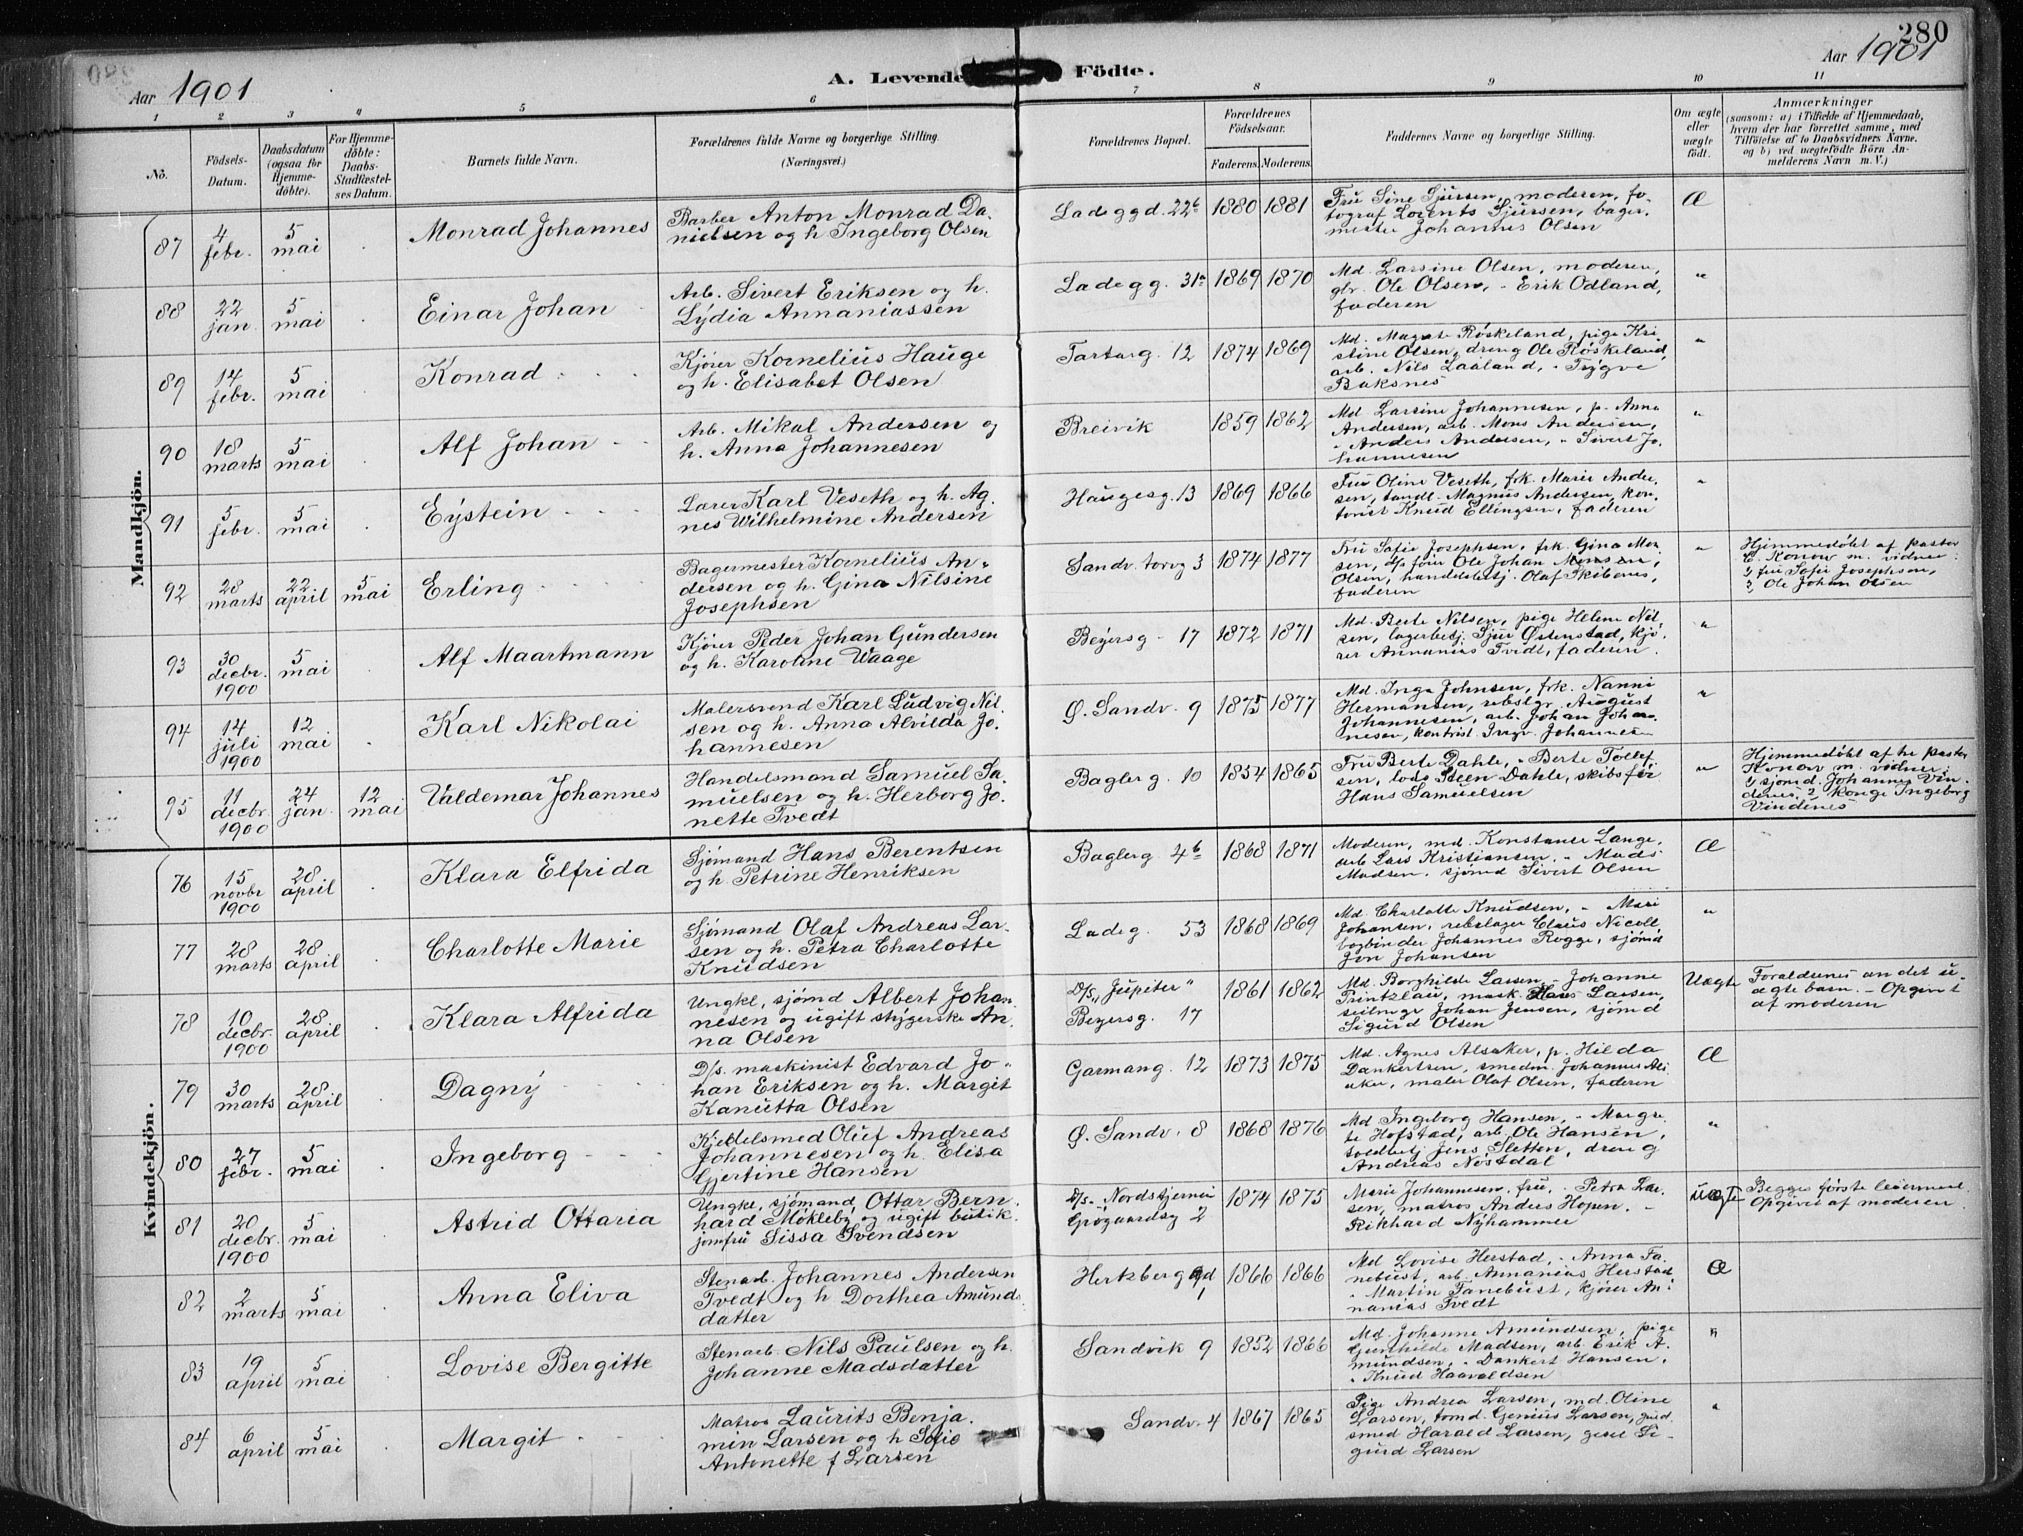 280
Aar 1901
A. Levende Födte.
Aar 1901
1 2 3 4 5 6 7 8 9 10 11
No.
Födsels-
Datum.
Daabsdatum
(ogsaa for
Hjemme-
döbte).
For Hjemme-
döbte:
Daabs-
Stadfæstel-
ses Datum.
Barnets fulde Navn.
Forældrenes fulde Navne og borgerlige Stilling.
(Næringsvei.)
Forældrenes Bopæl.
Forældrenes
Födselsaar.
Faderens. Moderens.
Faddernes Navne og borgerlige Stilling.
Om ægte
eller
uægte
födt.
Anmærkninger
(saasom: a) i Tilfælde af Hjemmedaab,
hvem der har forrettet samme, med
Tilföielse af to Daabsvidners Navne.
og b) ved uægtefödte Börn An-
melderens Navn m. V.)
Mandkjön.
87
4
febr.
5
mai
Monrad Johannes
Barber Anton Monrad Da-
nielsen og h Ingeborg Olsen
Ladeggd. 22b
1880 1881
Fru Sine Sjursen, moderen, fo-
tograf Lorents Sjursen, bager-
mester Johannes Olsen
Æ
88
22
jan.
5
mai
Einar Johan
Arb. Sivert Eriksen og h.
Lydia Annaniassen
Ladegg. 31a
1869 1870
Md. Larsine Olsen, moderen,
gbr. Ole Olsen, " Erik Odland,
faderen
"
89
14
febr.
5
mai
Konrad
Kjører Kornelius Hauge
og h. Elisabet Olsen
Tartarg. 12
1874 1869
Md. Magrete Røskeland, pige Kri-
stine Olsen, dreng Ole Røskeland,
arb. Nils Laaland, " Trygve
Baksnes
"
90
18
marts
5
mai
Alf Johan
Arb. Mikal Andersen og
h. Anna Johannesen
Breivik
1859 1862
Md Larsine Johannesen, p. Anna
Andersen, arb. Mons Andersen,
" Anders Andersen, " Sivert Jo-
hannesen
"
91
5
febr.
5
mai
Eystein
Lærer Karl Veseth og h. Ag-
nes Wilhelmine Andersen
Haugesg. 13
1869 1866
Fru Oline Veseth, frk. Marie Ander-
sen, tandl. Magnus Andersen, kon-
torist Knud Ellingsen, faderen
"
92
28
marts
22
april
5
mai
Erling
Bagermester Kornelius An-
dersen og h. Gina Nilsine
Josephsen
Sandv. torvg 3
1874 1877
Fru Sofie Josephsen, frk. Gina Mon-
sen, Ole Johan
Olsen, handelsbtj. Olaf Skibenes,
faderen
"
Hjemmedøbt af pastor
C. Konow m. vidner:
1, fru Sofie Josephsen,
2, Ole Johan Olsen
93
30
decbr.
1900
5
mai
Alf Maartmann
Kjører Peder Johan Gundersen
og h. Karoline Waage
Beyersg. 17
1872 1871
Md. Berte Nilsen, pige Helene Nil-
sen, lagerbetj. Sjur Østenstad, kjø-
rer Annanias Tvedt, faderen
"
94
14
juli
1900
12
mai
Karl Nikolai
Malersvend Karl Ludvig Nil-
sen og h. Anna Alvilda Jo-
hannesen
Ø. Sandv. 9
1875 1877
Md. Inga Johnsen, frk. Nanni
Hermansen, rebslgr. August
Johannesen, arb. Johan Johan-
nesen, kontrist. Ingv. Johannesen
"
95
11
decbr
1900
24
jan.
12
mai
Valdemar Johannes
Handelsmand Samuel Sa-
muelsen og h. Herborg Jo-
nette Tvedt
Baglerg. 10
1854 1865
Fru Berte Dahle, " Berte Tollef-
sen, lods Steen Dahle, skibsfør
Hans Samuelsen
"
Hjemmedøbt af hr pastor
Konow m. vidner:
1, sjømd. Johannes Vin-
denes, 2, Ingeborg
Vindenes
Kvindekjön.
76
15
novbr
1900
28
april
Klara Elfrida
Sjømand Hans Berentsen
og h. Petrine Henriksen
Baglerg. 4b
1868 1871
Moderen, md. Konstanse Lange,
arb Lars Kristiansen, " Mads
Madsen, sjømd Sivert Olsen
Æ
77
28
marts
28
april
Charlotte Marie
Sjømand Olaf Andreas Lar-
sen og h. Petra Charlotte
Knudsen
Ladeg. 53
1868 1869
Md. Charlotte Knudsen, " Mari
Johansen, rebslager Claus Nicoll,
bogbinder Johannes Rogge, sjømd
Jon Johansen
"
78
10
decbr.
1900
28
april
Klara Alfrida
Ungkl, sjømd Albert Johan-
nesen og ugift strygerske An-
na Olsen
D/s. "Jupiter"
Beyersg. 17
1861 1862
Md. Borghilde Larsen, " Johanne
Printzlau, mask. Hans Larsen,
seilmgr Johan Jensen, sjømd
Sigurd Olsen
Uægte
Forældrenes an det u-
ægte barn. - Opgivet
af moderen
79
30
marts
28
april
Dagny
D/s. maskinist Edvard Jo-
han Eriksen og h. Margit
Kanutta Olsen
Garmang. 12
1873 1875
Md. Agnes Alsaker, p. Hilda
Dankertsen, smedm. Johannes Al-
saker, maler Olaf Olsen, faderen
Æ
80
27
febr.
5
mai
Ingeborg
Kjedelsmed Oluf Andreas
Johannesen og h. Elisa
Gjertine Hansen
Ø. Sandv. 8
1868 1876
Md Ingeborg Hansen, " Margre-
te Hofstad, arb. Ole Hansen,
toldbetj Jens Sletten, dreng
Andreas Nøstdal
"
81
20
decbr.
1900
5
mai
Astrid Ottaria
Ungke, sjømand, Ottar Bern-
hard Møkleby og ugift butik-
jomfru Sissa Svendsen
D/s. Nordstjernen
Grøgaardsg 2
1874 1875
Marie Johannesen, fru, " Petra Lar-
sen, matros Anders Hopen, "
Rikhard Nyhammer
uægte
Begges første leiermaal.
Opgivet af moderen
82
2
marts
5
mai
Anna Eliva
Stenarb. Johannes Andersen
Tvedt og h Dorthea Amunds-
datter
Hertzberg gd
1866 1866
Md Lovise Herstad, " Anna Fa-
nebust, arb. Annanias Herstad
" Martin Fanebust, kjører An-
nanias Tvedt
Æ
83
19
april
5
mai
Lovise Bergitte
Stenarb. Nils Paulsen og h.
Johanne Madsdatter
Sandvik 9
1852 1866
Md. Johanne Amundsen, pige
Gunhilde Madsen, arb. Erik A-
mundsen, " Dankert Hansen,
" Knud Haavaldsen
"
84
6
april
5
mai
Margit
Matros Laurits Benja-
min Larsen og h Sofie
Antonette f Larsen
Sandv. 4
1867 1865
Pige Andrea Larsen, md. Oline
Larsen, tømd. Genius Larsen, guld-
smed Harald Larsen, gesel Si-
gurd Larsen
"